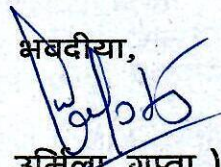 भवदीया,
उर्मिला गुप्ता )